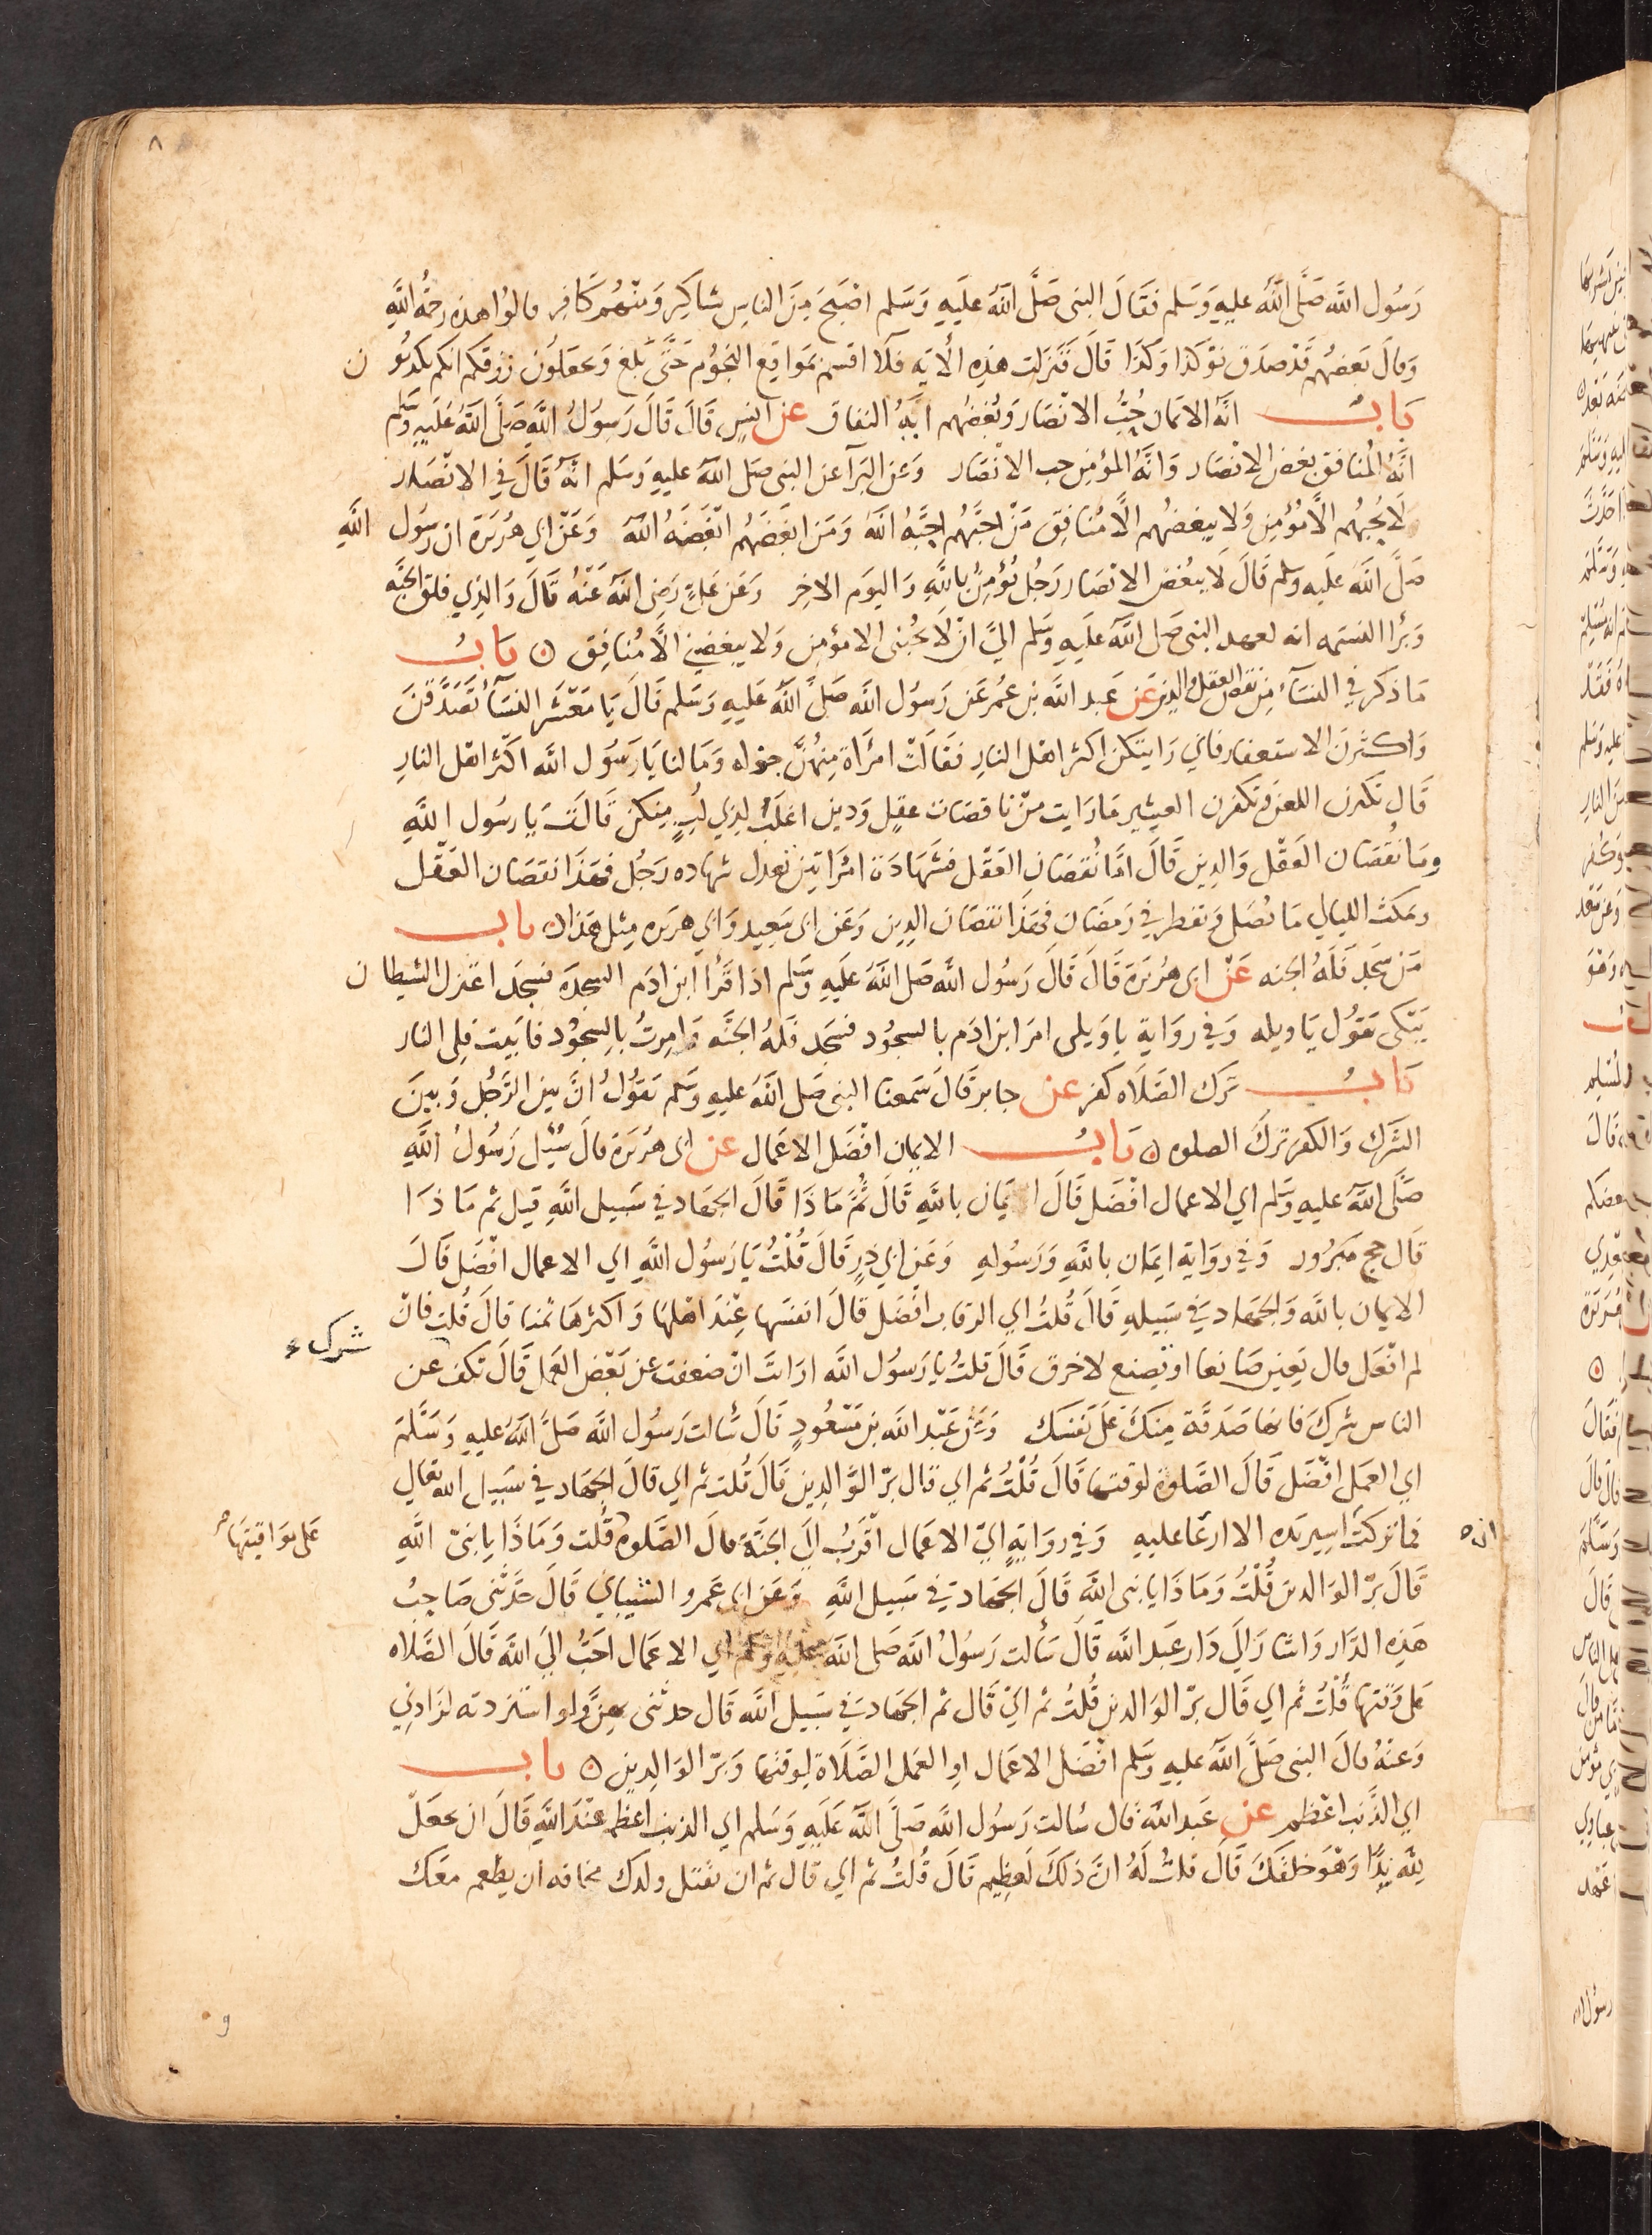 ٨
رَسُول الله صَلَّى اللهُ عليهِ وَسَلم فقَالَ النبى صَلَّى اللهُ عَلَيهِ وَسَلم اصْبَحَ مِنَ الناسِ شاكِر وَمنْهُم كَافِر قالوُا هذه رحمُة اللهِ
وَقالَ بَعضهُم قَدْ صَدَق نَوْ كَذا وَكَذَا قَالَ فَنَزلت هَذِه الأيَة فلَا اقسم بمَواقِع النجُوُم حَتَّى بَلغ وَتجعَلُون رزقكم انكم تكذبُون
بَابُ انَّهُ الايمَان حُبُّ الانْصَار وَبُغضُهم ايَةُ النفاق عن انسٍ قَالَ قَالَ رَسُولُ اللهِ صَلَّى اللهُ عَلَيهِ وَسَلم
ايَةُ المُنافق بغض الانْصَار وَايَةُ المؤمنِ حب الانْصَار وَعَن البَرآ عَن النبى صَلى اللهُ عليهِ وَسَلم انَّهُ قَالَ في الانْصَار
لَا يُحِبُهُم الَّا مُؤْمِن وَلا يبغضُهُم الَّا مُنافِق مَنْ احبَّهُم احِبَّهُ اللهُ وَمَن ابغَضَهُم ابْغَضَهُ اللهُ وَعَنْ ابي هُرَيَرة ان رسُول اللهِ
صَلَّى اللهُ عَليَه وسلم قَالَ لَا يبُغض الانْصَار رَجُل يُؤمِنُ باللهِ وَاليوَم الاخِر وَعَن عَلِيّ رَضِى اللهُ عَنْهُ قَالَ وَالذِي فلق الحبَّه
وَبَرأ النسَمه انه لعهد النبى صَلى اللهُ عَلَيهِ وسَلم اليَّ انْ لَا يحُبنى الا مؤمِن وَلا يبغضني الَّا مُنافِق ه بَابُ
مَا ذكر في النسَآء مِن نقص العقل والدين عَن عَبد الله بن عُمر عَن رَسوُل الله صَلَّى اللهُ عَليهِ وَسَلم قَالَ يَا مَعْشَر النسَآءُ تَصَدَّقنَ
وَاكثرنَ الاستغفار فاني رَايتكن اكثر اهْل النارِ فقالَتْ امْرَأة مِنهُنَّ جزله وَمَا لنا يَا رَسُول الله اكْثر اهْل النارِ
قَالَ تكثرن اللعن وَتكفرن العشِير مَا رَايت مِنْ ناقصَات عقلٍ وَدين اغلَبَ لذِي لُبٍ مِنكن قَالَتْ يَا رسُول اللهِ
وَمَا نُقصَان العَقْل وَالدِين قَالَ امَّا نُقصَان العَقْل فشَهَادَة امْرَاتين تعدل شهاده رَجُل فهَذَا نقصَان العَقْل
وتمكث الليالي مَا تُصَلى وَتفطر في رَمضَان فهَذَا نقصَان الدِين وَعَن ابى سَعِيد وَابي هريَره مِثل هَذا ه باب
مَن سَجد فَلَهُ الجنه عَنْ ابى هُرَيَرة قَالَ قَالَ رَسُول الله صَلى اللهُ عَليَهِ وسَلم اذا قَرَأ ابن ادَم السجدَه فسجَد اعتزل الشيطان
يَبْكى يَقوُل يَا ويله وَفي روَاية يا وَيلى امرَ ابن ادَم بالسجُود فسَجد فلهُ الجنَّه وَامِرتُ بالسِجُوُد فابَيت فلِى النار
بَابُ ترَك الصَلَاه كفر عن جابر قَالَ سَمعت النبى صَلى اللهُ عليهِ وَسَلم يَقوُلُ انَّ بين الرَّجُل وَبَينَ
الشَرك وَالكفر تركَ الصلوه ه بَابُ الايمان افْضَل الاعمَال عَن ابى هرَيَرة قالَ سُئِل رَسُولُ اللهِ
صَلَّى اللهُ عليهِ وسَلم اي الاعمال افْضَل قَالَ ايمَان باللهِ قَالَ ثُمَّ مَاذَا قَالَ الجهَاد في سَبيل اللهِ قيل ثم مَاذَا
قَال حج مَبرُور وَفي روَاية ايمَان باللهِ وَرَسُولهِ وَعَن ابي ذرٍ قَالَ قُلْتُ يَا رَسُول اللهِ اي الاعمال افْضَل قَالَ
الايمان بالله وَالجهَاد في سَبيلهِ قَالَ قُلتُ اي الرقاب افْضَل قَالَ انفسَهَا عِنْدَ اهْلها وَاكثرهَا ثمنا قالَ قُلت فانْ
شرك
لم افْعَل قال يَعين صَانعا او يصنع لاخرق قَالَ قلتُ يا رَسوُل الله ارَايتَ انْ ضعفت عن بَعْض العمَل قَالَ تكف عن
الناس شركَ فانها صَدقَة مِنكَ عَلى نَفْسَك وَعَن عَبْد الله بن مَسْعُودٍ قَالَ سَألت رَسُول الله صَلَّى اللهُ عليهِ وَسَلَّمَ
اي العمَل افْضَل قَالَ الصَّلوة لوقتها قَالَ قُلْتُ ثم اي قَال برّ الوَالِدين قَالَ قُلت ثم اي قَالَ الجهَاد في سَبيل الله تعالى
فما تركتُ اسِتزيدَه الا ارعَا عليهِ وَفي روَايَةٍ ايّ الاعمَال اقْرَبُ اليَ الجنَّة قالَ الصَّلوه قُلت وَمَاذَا يا نبىّ اللهِ
على موَاقيتهَا
قَالَ برّ الوَالدين قُلْتُ وَمَاذَا يا نبى الله قَالَ الجهَاد في سَبيل اللهِ وَعَن ابى عَمرو الشيبَاني قَالَ حَدَّثنى صَاحِبُ
هَذِه الدَّار وَاشَارَ الَي دَار عَبد الله قَالَ سَألت رَسُولُ الله صَلى اللهُ عليهِ وَسَلم اي الاعمَال احَبُّ الَي الله قَالَ الصَّلَاه
عَلى وَقتها قُلْتُ ثُم اي قَال برّ الوَالدين قُلتُ ثم ايّ قَال ثم الجهَاد في سَبيل الله قَال حدثنى بهنَّ وَلو استزدته لزَادني
وَعَنْهُ قالَ النبى صَلَّى اللهُ عليهِ وَسَلم افْضَل الاعمَال او العمَل الصَّلَاة لِوقتها وَبرّ الوَالِدين ه باب
اي الذَّنب اعْظم عن عَبد الله قَال سَالت رَسُول الله صَلَّى اللهُ عَليَهِ وَسَلم اي الذنب اعْظم عنْدَ اللهِ قَالَ ان تجعَل
لِله نِدًّا وَهُوَ خلقكَ قَالَ قلتُ لَهُ انَّ ذلكَ لَعظِيم قَالَ قُلتُ ثم اي قال ثم ان تقتل ولدك مخافه ان يطعم معَك